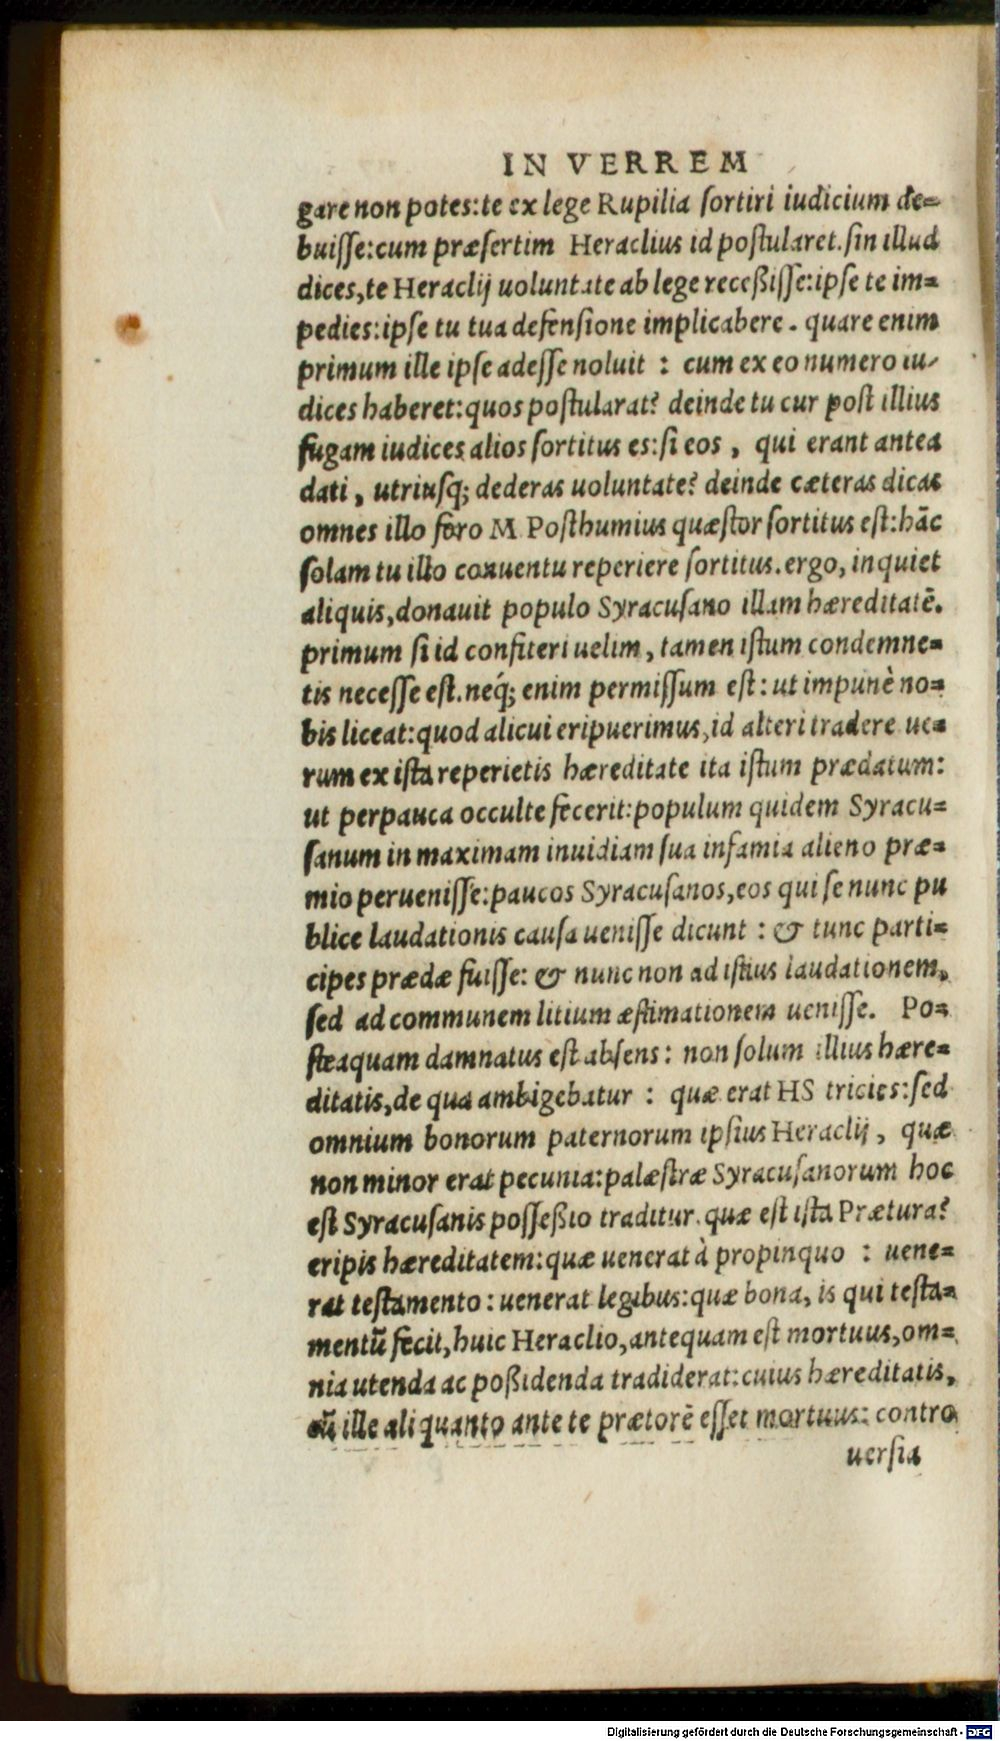 IN VERREM
gare non potes:te ex lege Rupilia sortiri iudicium de=
buiſſe:cum præſertim Heraclius id poſtularet.ſin illud
dices,te Heraclij uoluntate ab lege receßiſſe:ipſe te im=
pedies:ipſe tu tua defenſione implicabere . quare enim
primum ille ipſe adeſſe noluit : cum ex eo numero iu-
dices haberet:quos poſtularat? deinde tu cur poſt illius
fugam iudices alios ſortitus es:ſi eos , qui erant antea
dati , utriuſq; dederas uoluntate? deinde cæteras dicas
omnes illo foro M Poſthumius quæſtor ſortitus eſt:hãc
ſolam tu illo conuentu reperiere ſortitus.ergo, inquiet
aliquis,donauit populo Syracuſano illam hæreditatẽ.
primum ſi id confiteri uelim , tamen iſtum condemne=
tis neceſſe eſt.neq́; enim permiſſum eſt: ut impunè no=
bis liceat:quod alicui eripuerimus,id alteri tradere ue=
rum ex iſta reperietis hæreditate ita iſtum prædatum:
ut perpauca occulte fecerit:populum quidem Syracu=
ſanum in maximam inuidiam ſua infamia alieno præ=
mio perueniſſe:paucos Syracuſanos,eos qui ſe nunc pu
blice laudationis cauſa ueniſſe dicunt : & tunc parti=
cipes prædæ fuiſſe: & nunc non ad iſtius laudationem,
ſed ad communem litium æſtimationem ueniſſe. Po=
ſteaquam damnatus eſt abſens: non ſolum illius hære=
ditatis,de qua ambigebatur : quæ erat HS tricies:ſed
omnium bonorum paternorum ipſius Heraclij , quæ
non minor erat pecunia:palæſtræ Syracuſanorum hoc
eſt Syracuſanis poſſeßio traditur.quæ eſt iſta Prætura?
eripis hæreditatem:quæ uenerat à propinquo : uene=
rat teſtamento : uenerat legibus:quæ bona, is qui teſta=
mentũ fecit,huic Heraclio,antequam eſt mortuus,om=
nia utenda ac poßidenda tradiderat:cuius hæreditatis,
cũ ille aliquanto ante te prætorẽ eſſet mortuus: contro
uerſia
Digitalisierung gefördert durch die Deutsche Forschungsgemeinschaft - DFG